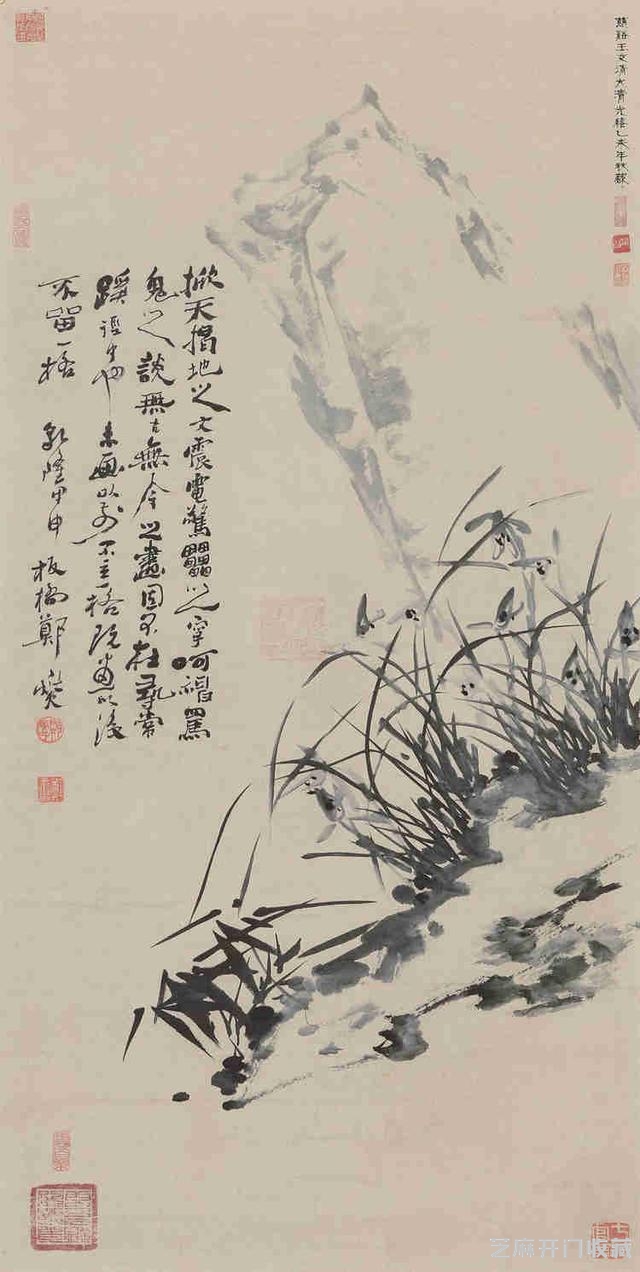 谿王文清大清光緒乙未年秋藏
掀天揭地之文震電驚靁之字呵神罵
鬼之談無古無今之畫固不在尋常
蹊徑中也未畫以前不立一格既畫以後
不留一格 乾隆甲申 板橋鄭燮
芝麻开门收藏